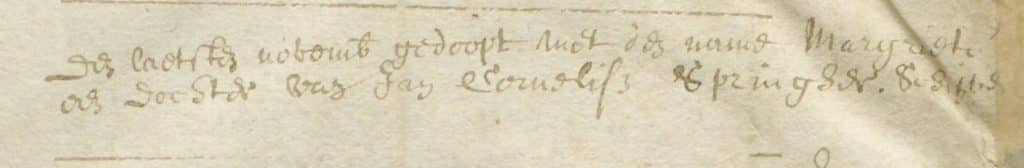 Den laetsten novemb gedoopt met den name Margriete
een dochter van Jan Cornelisz Springher. Schipper